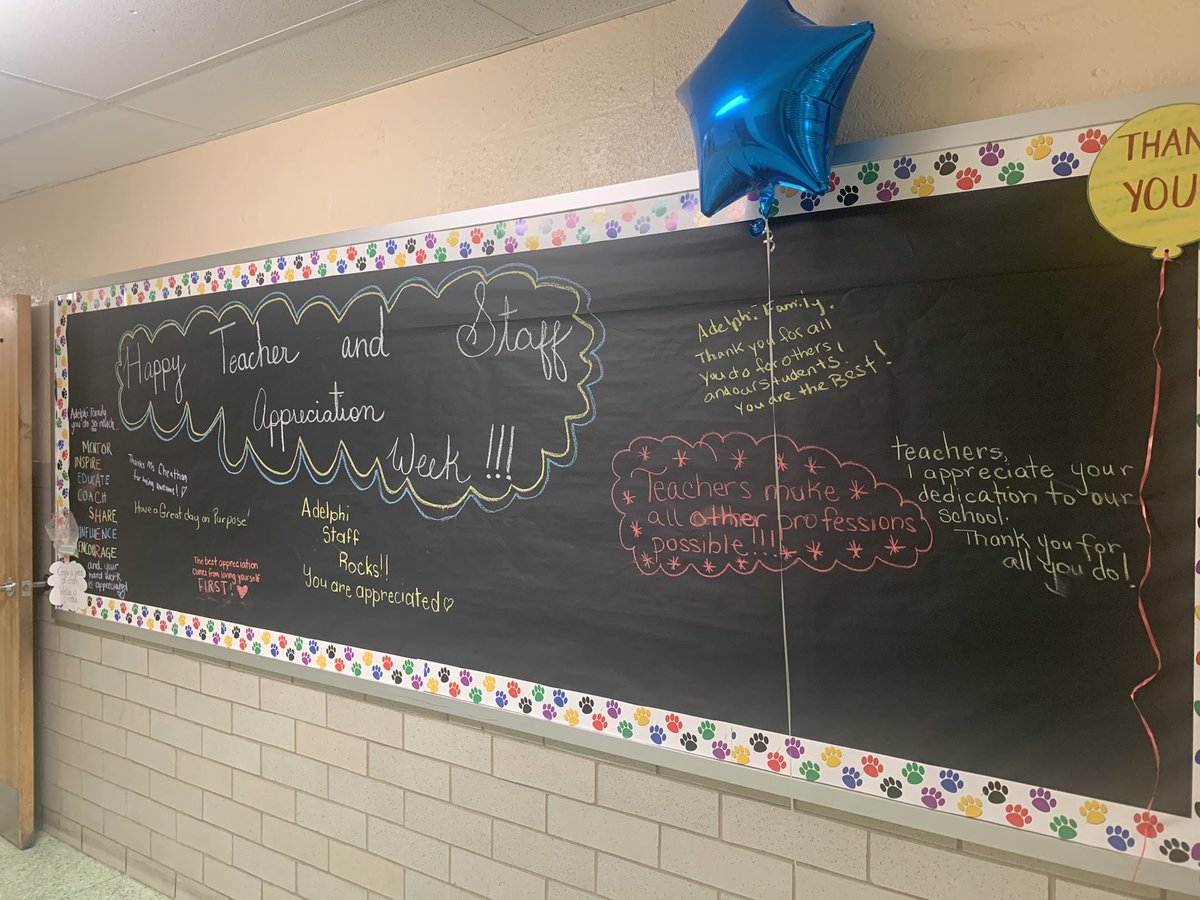 Happy Teacher and Staff
Appreciation
Week !!!
Adelphi Family
you do so much...
MENTOR
INSPIRE
EDUCATE
COACH
SHARE
INFLUENCE
ENCOURAGE
and your
hard work
is appreciated
Thanks Ms Cheatham
for being awesome!
Have a Great day on Purpose!
The best appreciation
comes from loving yourself
FIRST!
Adelphi
Staff
Rocks!!
You are appreciated
Adelphi Family,
Thank you for all
you do for others,
and our students.
You are the Best!
Teachers make
all other professions
possible!!!
Teachers,
I appreciate your
dedication to our
school.
Thank you for
all you do!
THAN
YOU